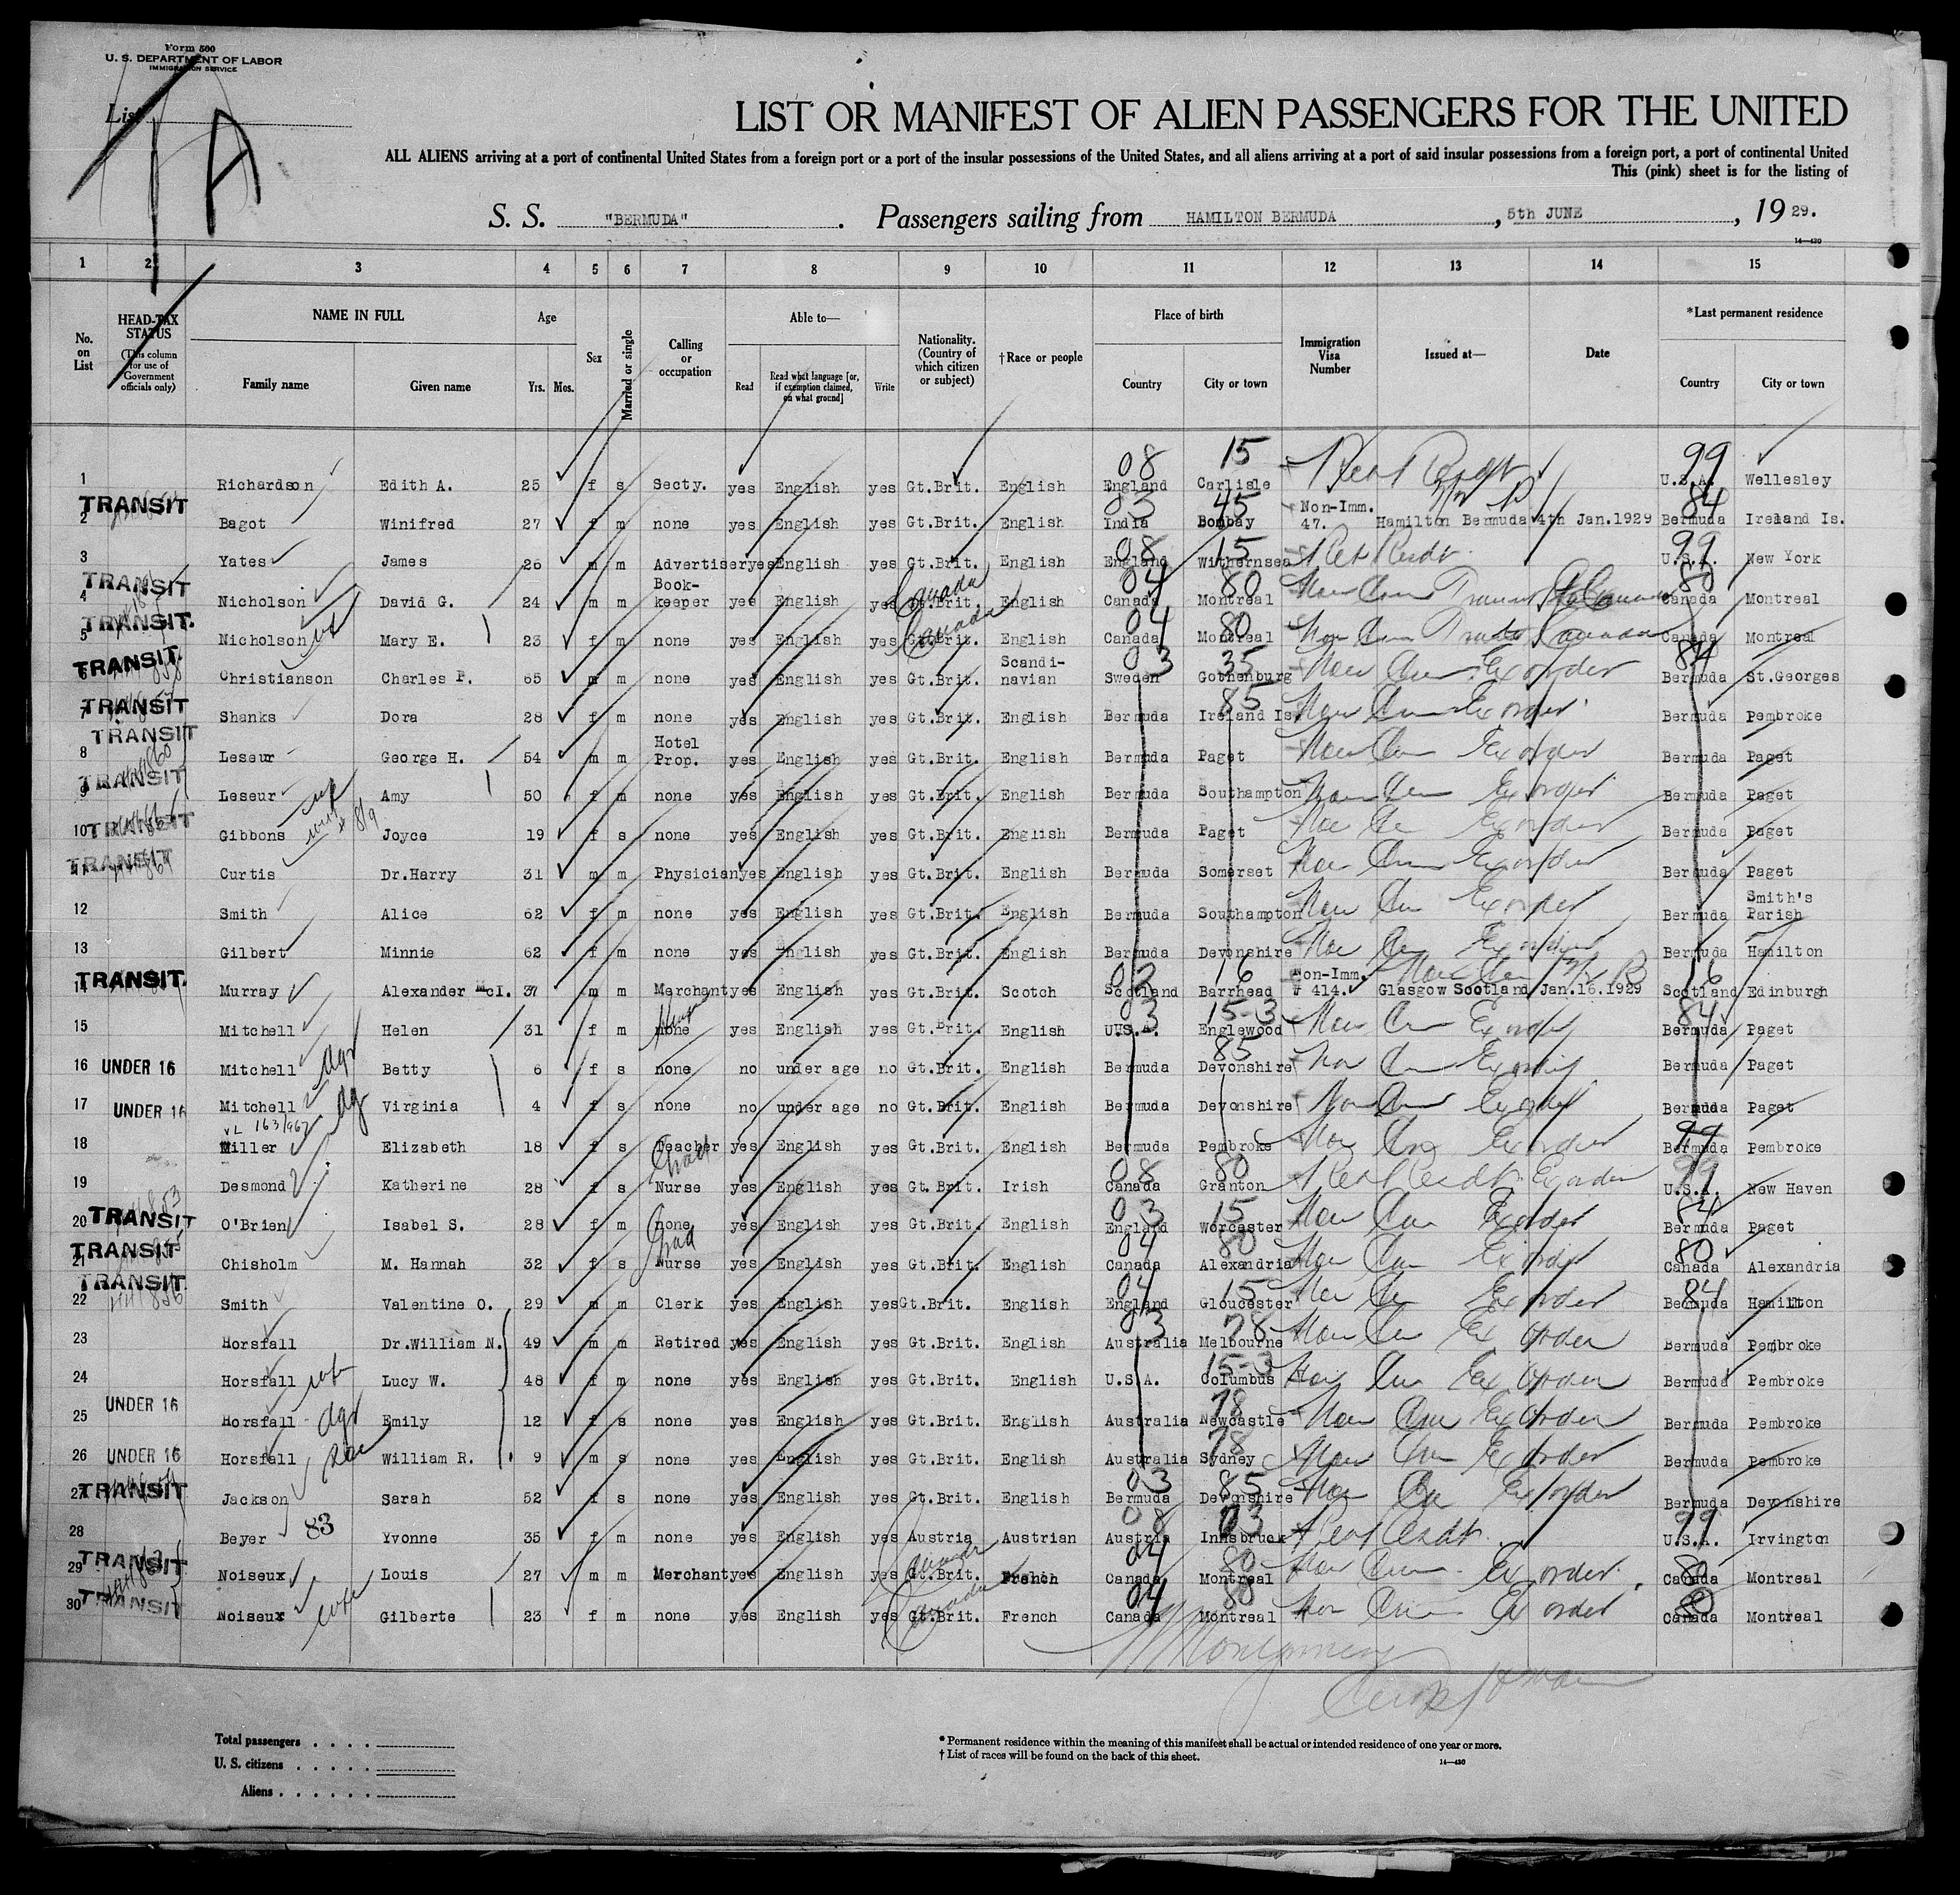 Form 500
U. S. DEPARTMENT OF LABOR
IMMIGRATION SERVICE
List
1 A
LIST OR MANIFEST OF ALIEN PASSENGERS FOR THE UNITED
ALL ALIENS arriving at a port of continental United States from a foreign port or a port of the insular possessions of the United States, and all aliens arriving at a port of said insular possessions from a foreign port, a port of continental United
This (pink) sheet is for the listing of
S. S. "BERMUDA" . Passengers sailing from HAMILTON BERMUDA , 5th JUNE , 19 29.
14—430
1 2 3 4 5 6 7 8 9 10 11 12 13 14 15
No. on List HEAD-TAX STATUS (This column for use of Government officials only) NAME IN FULL Family name Given name Age Yrs. Mos. Sex Married or single Calling or occupation Able to— Read Read what language [or, if exemption claimed, on what ground] Write Nationality. (Country of which citizen or subject) †Race or people Place of birth Country City or town Immigration Visa Number Issued at— Date *Last permanent residence Country City or town
1 Richardson Edith A. 25 f s Secty. yes English yes Gt.Brit. English 08 England 15 Carlisle 99 U.S.A. Wellesley
TRANSIT
2 Bagot Winifred 27 f m none yes English yes Gt.Brit. English 03 India 45 Bombay Non-Imm. 47. Hamilton Bermuda 4th Jan.1929 84 Bermuda Ireland Is.
3 Yates James 26 m m Advertiser yes English yes Gt.Brit. English 08 England 15 Withernsea 99 U.S.A. New York
TRANSIT
4 Nicholson David G. 24 m m Book-keeper yes English yes Gt.Brit. Canada English 04 Canada 80 Montreal 80 Canada Montreal
TRANSIT.
5 Nicholson Mary E. 23 f m none yes English yes Gt.Brit. Canada English 04 Canada 80 Montreal Canada Montreal
TRANSIT.
6 Christianson Charles P. 65 m m none yes English yes Gt.Brit. Scandi-navian 03 Sweden 35 Gothenburg Ex order 84 Bermuda St.Georges
TRANSIT
7 Shanks Dora 28 f m none yes English yes Gt.Brit. English Bermuda 85 Ireland Is Ex order Bermuda Pembroke
TRANSIT
8 Leseur George H. 54 m m Hotel Prop. yes English yes Gt.Brit. English Bermuda Paget Ex order Bermuda Paget
TRANSIT
9 Leseur wife Amy 50 f m none yes English yes Gt.Brit. English Bermuda Southampton Ex order Bermuda Paget
TRANSIT
10 Gibbons Joyce 19 f s none yes English yes Gt.Brit. English Bermuda Paget Ex order Bermuda Paget
TRANSIT
11 Curtis Dr.Harry 31 m m Physician yes English yes Gt.Brit. English Bermuda Somerset Ex order Bermuda Paget
12 Smith Alice 62 f m none yes English yes Gt.Brit. English Bermuda Southampton Ex order Bermuda Smith's Parish
13 Gilbert Minnie 62 f m none yes English yes Gt.Brit. English Bermuda Devonshire Ex order Bermuda Hamilton
TRANSIT.
14 Murray Alexander McI. 37 m m Merchant yes English yes Gt.Brit. Scotch 02 Scotland 16 Barrhead Non-Imm. # 414. Glasgow Scotland Jan.16.1929 16 Scotland Edinburgh
15 Mitchell Helen 31 f m none yes English yes Gt.Brit. English 03 U.S.A. 15-3 Englewood Ex order 84 Bermuda Paget
16 UNDER 16 Mitchell dgr Betty 6 f s none no under age no Gt.Brit. English Bermuda 85 Devonshire Ex order Bermuda Paget
17 UNDER 16 Mitchell dgr Virginia 4 f s none no under age no Gt.Brit. English Bermuda Devonshire Ex order Bermuda Paget
VL 163/967
18 Miller Elizabeth 18 f s Teacher yes English yes Gt.Brit. English Bermuda Pembroke Ex order 99 Bermuda Pembroke
19 Desmond Katherine 28 f s Nurse yes English yes Gt.Brit. Irish 08 Canada 80 Granton Ex order 99 U.S.A. New Haven
20 TRANSIT O'Brien Isabel S. 28 f m none yes English yes Gt.Brit. English 03 England 15 Worcester Ex order 84 Bermuda Paget
TRANSIT
21 Chisholm M. Hannah 32 f s Grad Nurse yes English yes Gt.Brit. English 04 Canada 80 Alexandria Ex order 80 Canada Alexandria
TRANSIT.
22 Smith Valentine O. 29 m m Clerk yes English yes Gt.Brit. English 04 England 15 Gloucester Ex order 84 Bermuda Hamilton
23 Horsfall Dr.William N. 49 m m Retired yes English yes Gt.Brit. English 03 Australia 78 Melbourne Ex order Bermuda Pembroke
24 Horsfall wife Lucy W. 48 f m none yes English yes Gt.Brit. English U.S.A. 15-3 Columbus Ex order Bermuda Pembroke
UNDER 16
25 Horsfall dgr Emily 12 f s none yes English yes Gt.Brit. English Australia 78 Newcastle Ex order Bermuda Pembroke
26 UNDER 16 Horsfall son William R. 9 m s none yes English yes Gt.Brit. English Australia 78 Sydney Ex order Bermuda Pembroke
27 TRANSIT Jackson Sarah 52 f s none yes English yes Gt.Brit. English 03 Bermuda 85 Devonshire Ex order Bermuda Devonshire
28 Beyer 83 Yvonne 35 f m none yes English yes Austria Austrian 08 Austria 03 Innsbruck 99 U.S.A. Irvington
29 TRANSIT Noiseux Louis 27 m m Merchant yes English yes Gt.Brit. Canada French 04 Canada 80 Montreal Ex order 80 Canada Montreal
30 TRANSIT Noiseux wife Gilberte 23 f m none yes English yes Gt.Brit. Canada French 04 Canada 80 Montreal Ex order 80 Canada Montreal
Total passengers . . . .
U. S. citizens . . . . .
Aliens . . . . . .
* Permanent residence within the meaning of this manifest shall be actual or intended residence of one year or more.
† List of races will be found on the back of this sheet.
14—430